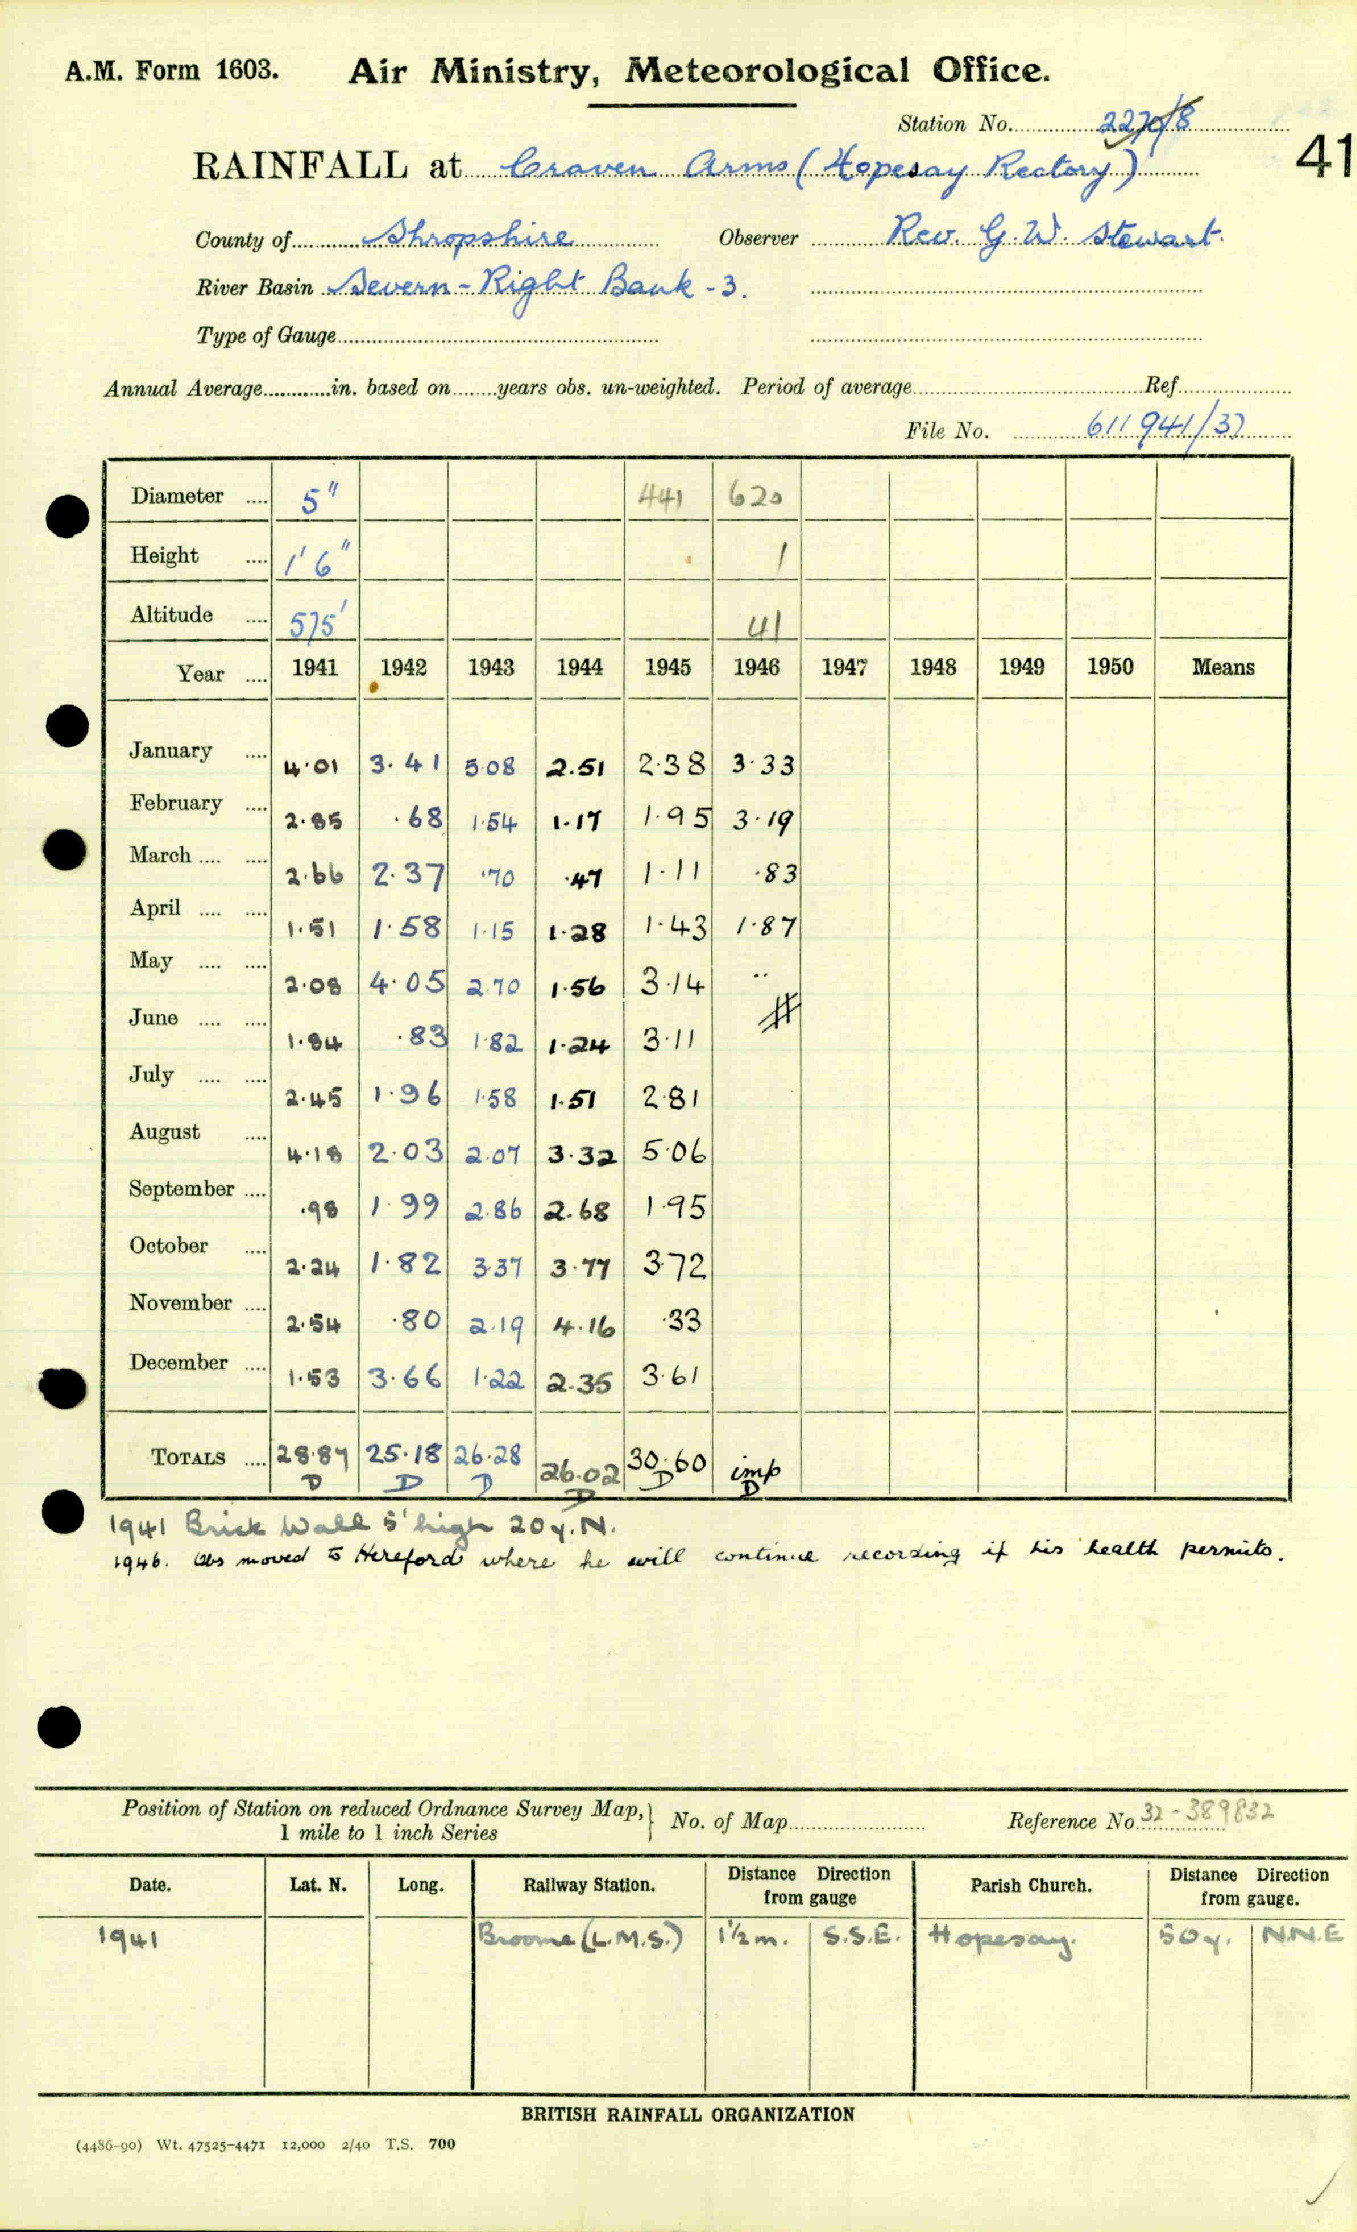 A.M. Form 1603. Air Ministry, Meteorological Office.
Station No. 2270/8
41
RAINFALL at Craven Arms (Hopesay Rectory)
County of Shropshire Observer Rev. G. W. Stewart.
River Basin Severn - Right Bank - 3.
Type of Gauge
Annual Average in. based on years obs. un-weighted. Period of average Ref
File No. 611941/37
Diameter 5" 441 620
Height 1' 6" 1
Altitude 575' 41
Year 1941 1942 1943 1944 1945 1946 1947 1948 1949 1950 Means
January 4.01 3.41 5.08 2.51 2.38 3.33
February 2.85 .68 1.54 1.17 1.95 3.19
March 2.66 2.37 .70 .47 1.11 .83
April 1.51 1.58 1.15 1.28 1.43 1.87
May 2.08 4.05 2.70 1.56 3.14 ..
June 1.84 .83 1.82 1.24 3.11
July 2.45 1.96 1.58 1.51 2.81
August 4.18 2.03 2.07 3.32 5.06
September .98 1.99 2.86 2.68 1.95
October 2.24 1.82 3.37 3.77 3.72
November 2.54 .80 2.19 4.16 .33
December 1.53 3.66 1.22 2.35 3.61
TOTALS 28.87 25.18 26.28 26.02 30.60 imp
D D D D D D
1941 Brick Wall 5' high 20y. N.
1946. Obs moved to Hereford where he will continue recording if his health permits.
Position of Station on reduced Ordnance Survey Map, No. of Map Reference No. 32-389832
1 mile to 1 inch Series
Date. Lat. N. Long. Railway Station. Distance Direction from gauge Parish Church. Distance Direction from gauge.
1941 Broome (L.M.S.) 1½ m. S.S.E. Hopesay. 50 y. N.N.E
BRITISH RAINFALL ORGANIZATION
(4486-90) Wt. 47525-4471 12,000 2/40 T.S. 700